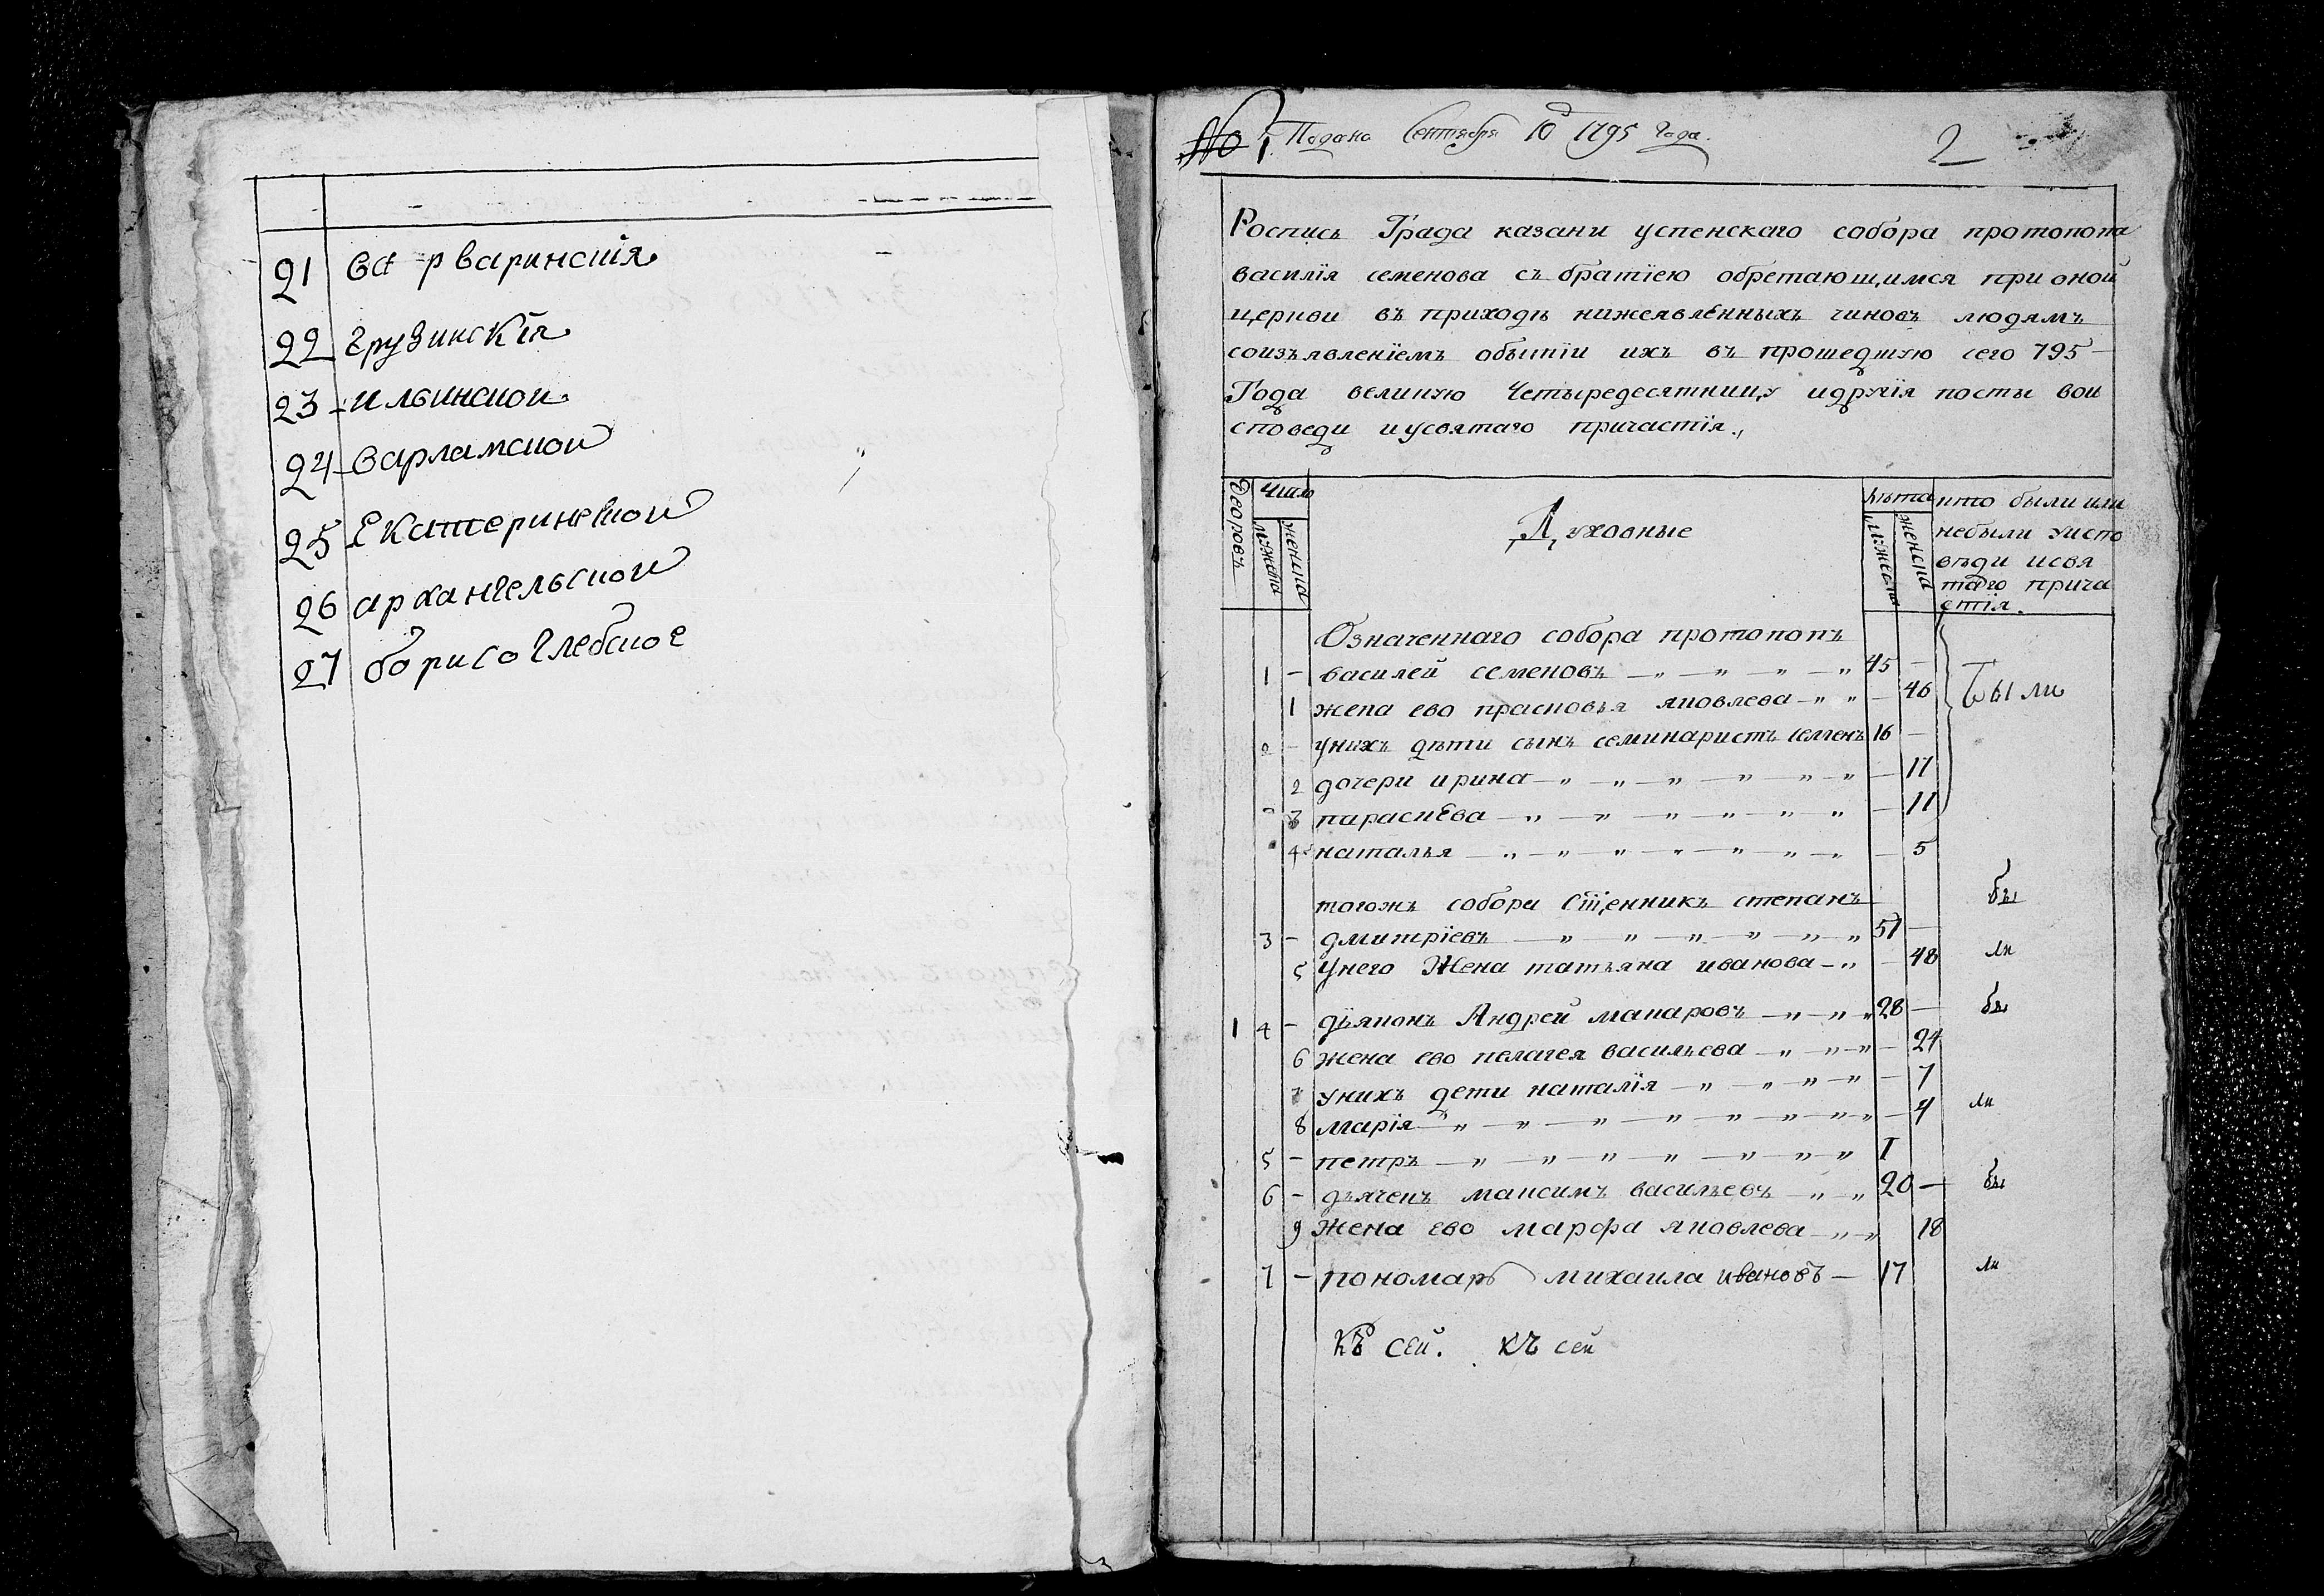 21 варваринскія
22 грузинскія
23 ильинской
24 варламской
25 Екатериневской
26 архангельской
27 борисоглебское
№ 1. Подана Сентября 10д 1795 года.
2
Роспись Града казани успенскаго собора протопопа
василїя семенова съ братїею обретающимся при оной
церкви въ приходѣ нижеявленныхъ чиновъ людямъ
соизъявленїемъ обытїи ихъ въ прошедшую сего 795
Года великую Четыредесятницу идругїя посты вои
споведи иусвятаго причастїя.
Дворовъ
Число
мужеска
женска
Духовные
лѣта
мужеска
женска
кто были или
небыли уиспо
вѣди исвя
таго прича
стїя.
Означеннаго собора протопопъ
1 - василей семеновъ 45 - Были
1 жена ево прасковья яковлева - 46
2 - унихъ дѣти сынъ семинаристъ семенъ 16 -
2 дочери ирина - 17
3 параскева - 11
4 наталья - 5
тогожъ собора Сщ҃енникъ степанъ бы
3 - дмитрїевъ 51 -
5 Унего Жена татьяна иванова - 48 ли
1 4 - дїяконъ Андрей макаровъ 28 - бы
6 жена ево пелагея васильева - 24
7 унихъ дети наталїя - 7
8 марїя - 4 ли
5 - петръ 1
6 - дьячекъ максимъ васильевъ 20 - бы
9 жена ево марфа яковлева 18
7 - пономарь михаила ивановъ - 17 ли
къ сей. къ сей